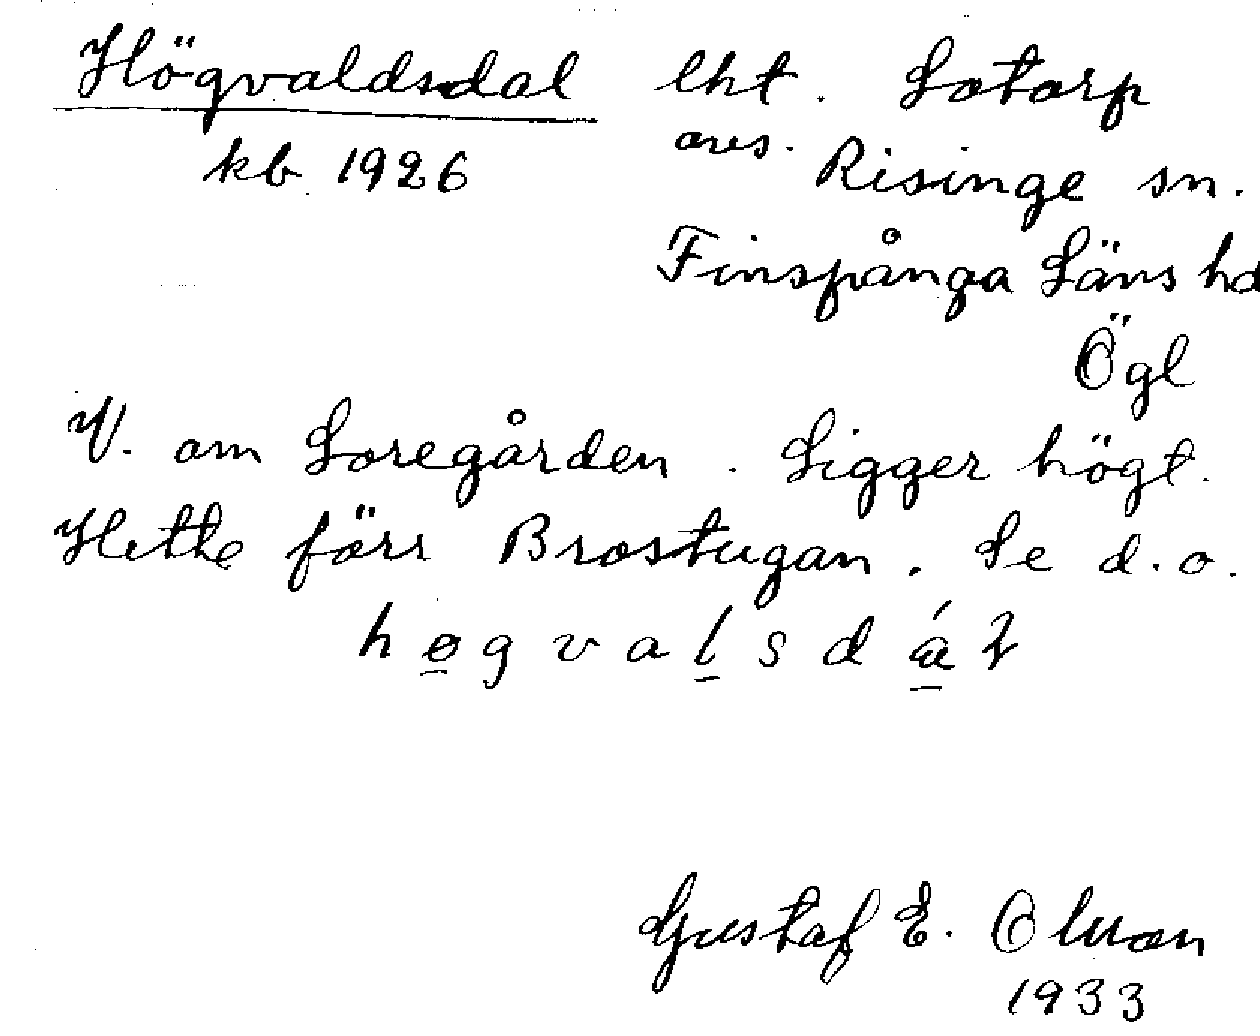 Högvaldsdal lht. Lotorp
kb. 1926 avs. Risinge sn.
Finspånga Läns hd
Ögl
V. om Loregården. Ligger högt.
Hette förr Brostugan. Se d.o.
Gustaf E. Olsson
1933